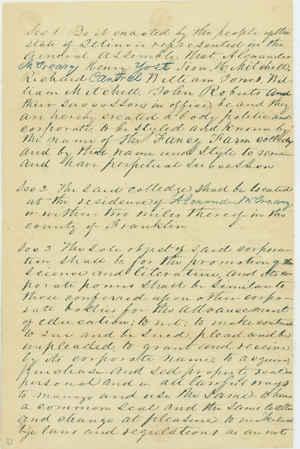 Sec 1 Be it enacted by the people of the
state of Illinois represented in the
General Assembly that Alexander
McCreary Henry Yost Sion H. Mitchell
Richard Cantrel William Jones Wil
liam Mitchell John Roberts and
their successors in office be and they
are hereby created a body politic and
corporate to be styled and known by
the name of The Fancy Farm colledge
and by that name and style to remain
and have perpetual succession
Sec 2 The said colledge shall be located
at the residence of Alexander McCreary
or within two miles thereof in the
county of Franklin
Sec 3 The sole object of said corpora
tion shall be for the promotion of the
science and literature, and its cor
porate powers shall be similar to
those conferred upon other corpo
rate bodies for the advancement
of education; to wit: to make contracts
to sue and be sued, plead and be
impleaded, to grant and receive
by its corporate name; to acquire
purchase and sell property real or
personal and in all lawful ways
to manage and use the same to have
a common seal and the same to alter
and change at pleasure to make such
by laws and regulations as are not